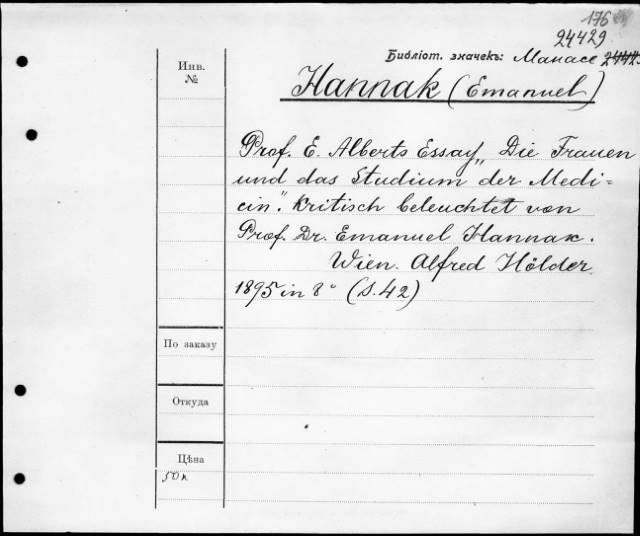 176
24429
Библіот. значекъ: Манасе
Инв.
№
Hannak (Emanuel)
Prof. E. Alberts Essay „Die Frauen
und das Studium der Medi=
cin“. Kritisch beleuchtet von
Prof. Dr. Emanuel Hannak.
Wien. Alfred Hölder
1895 in 8° (S. 42)
По заказу
Откуда
Цѣна
50 к